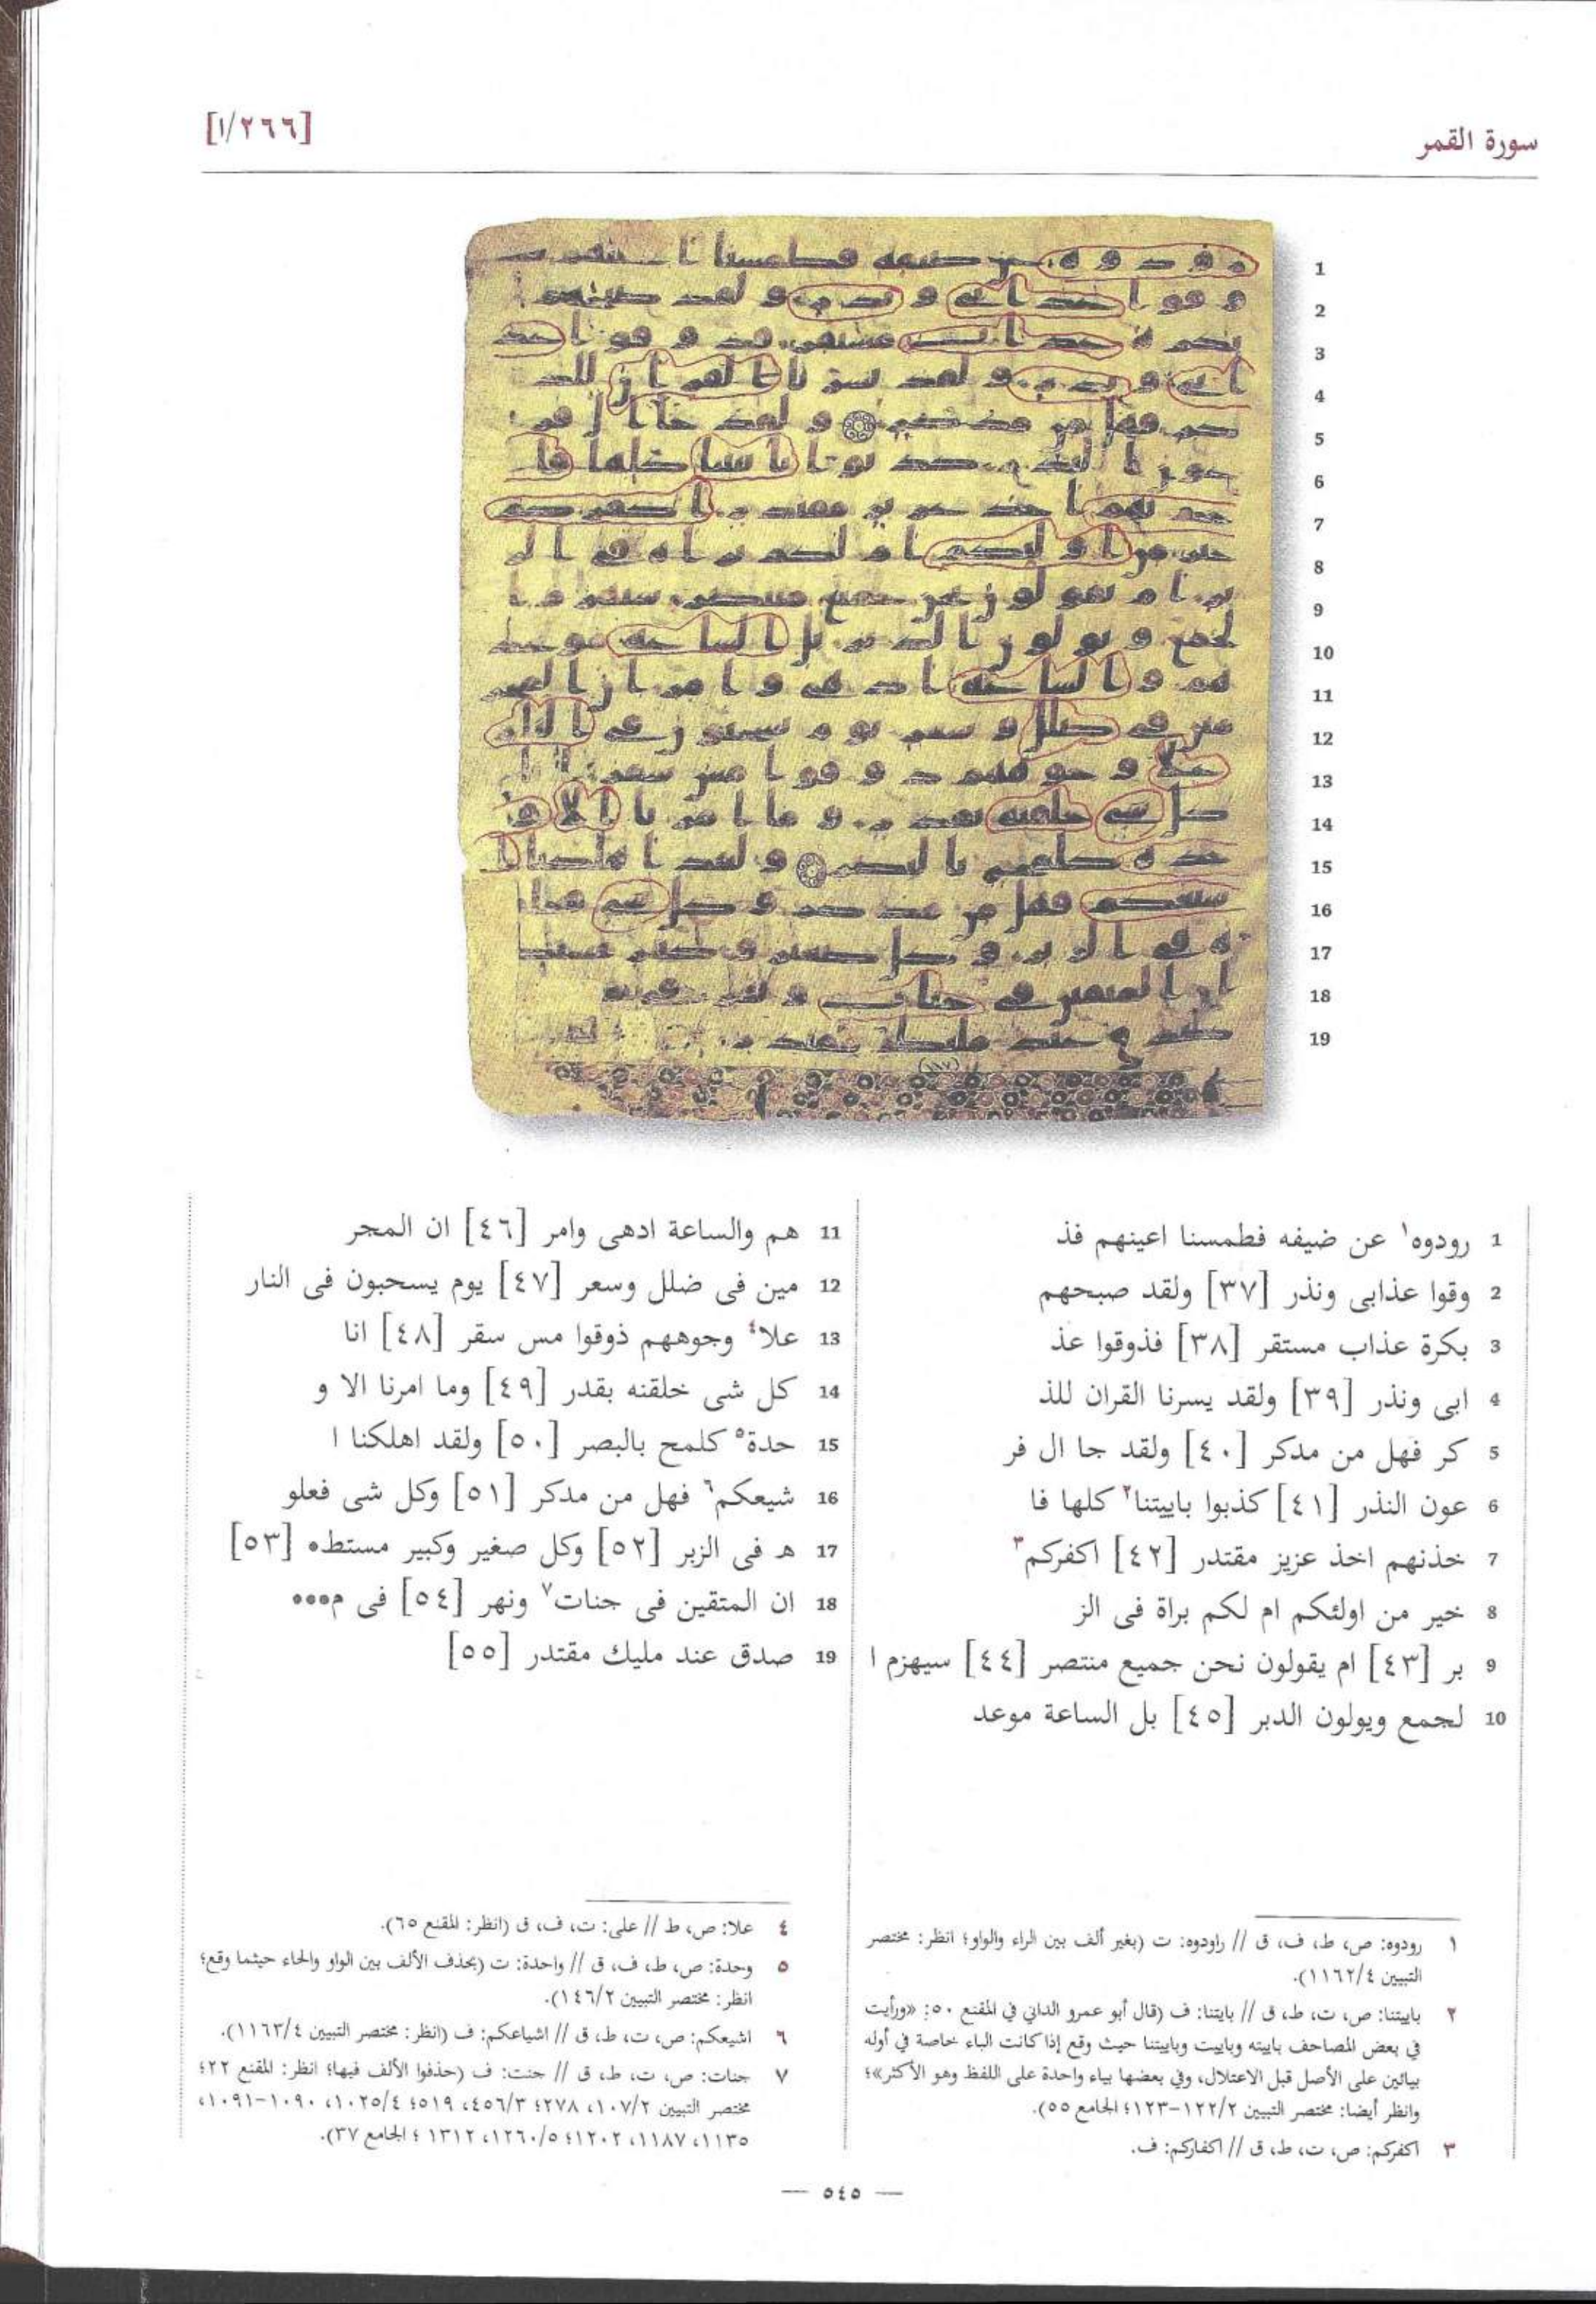 سورة القمر
[١/٢٦٦]
1 رودوه١ عن ضيفه فطمسنا اعينهم فذ
2 وقوا عذابى ونذر [٣٧] ولقد صبحهم
3 بكرة عذاب مستقر [٣٨] فذوقوا عذ
4 ابى ونذر [٣٩] ولقد يسرنا القران للذ
5 كر فهل من مدكر [٤٠] ولقد جا ال فر
6 عون النذر [٤١] كذبوا باييتنا٢ كلها فا
7 خذنهم اخذ عزيز مقتدر [٤٢] اكفركم٣
8 خير من اولئكم ام لكم براة فى الز
9 بر [٤٣] ام يقولون نحن جميع منتصر [٤٤] سيهزم ا
10 لجمع ويولون الدبر [٤٥] بل الساعة موعد
11 هم والساعة ادهى وامر [٤٦] ان المجر
12 مين فى ضلل وسعر [٤٧] يوم يسحبون فى النار
13 علا٤ وجوههم ذوقوا مس سقر [٤٨] انا
14 كل شى خلقنه بقدر [٤٩] وما امرنا الا و
15 حدة٥ كلمح بالبصر [٥٠] ولقد اهلكنا ا
16 شيعكم٦ فهل من مدكر [٥١] وكل شى فعلو
17 ه فى الزبر [٥٢] وكل صغير وكبير مستط• [٥٣]
18 ان المتقين فى جنات٧ ونهر [٥٤] فى م•••
19 صدق عند مليك مقتدر [٥٥]
١ رودوه: ص، ط، ف، ق // راودوه: ت (بغير ألف بين الراء والواو؛ انظر: مختصر
التبيين ١١٦٢/٤).
٢ باييتنا: ص، ت، ط، ق // بايتنا: ف (قال أبو عمرو الداني في المقنع ٥٠: «ورأيت
في بعض المصاحف باييته وباييت وباييتنا حيث وقع إذا كانت الباء خاصة في أوله
بيائين على الأصل قبل الاعتلال، وفي بعضها بياء واحدة على اللفظ وهو الأكثر»؛
وانظر أيضا: مختصر التبيين ١٢٢/٢-١٢٣؛ الجامع ٥٥).
٣ اكفركم: ص، ت، ط، ق // اكفاركم: ف.
٤ علا: ص، ط // على: ت، ف، ق (انظر: المقنع ٦٥).
٥ وحدة: ص، ط، ف، ق // واحدة: ت (بحذف الألف بين الواو والحاء حيثما وقع؛
انظر: مختصر التبيين ١٤٦/٢).
٦ اشيعكم: ص، ت، ط، ق // اشياعكم: ف (انظر: مختصر التبيين ١١٦٣/٤).
٧ جنات: ص، ت، ط، ق // جنت: ف (حذفوا الألف فيها؛ انظر: المقنع ٢٢؛
مختصر التبيين ١٠٧/٢، ٢٧٨؛ ٤٥٦/٣، ٥١٩؛ ١٠٢٥/٤، ١٠٩٠-١٠٩١،
١١٣٥، ١١٨٧، ١٢٠٢؛ ١٢٦٠/٥، ١٣١٢ ؛ الجامع ٣٧).
— ٥٤٥ —